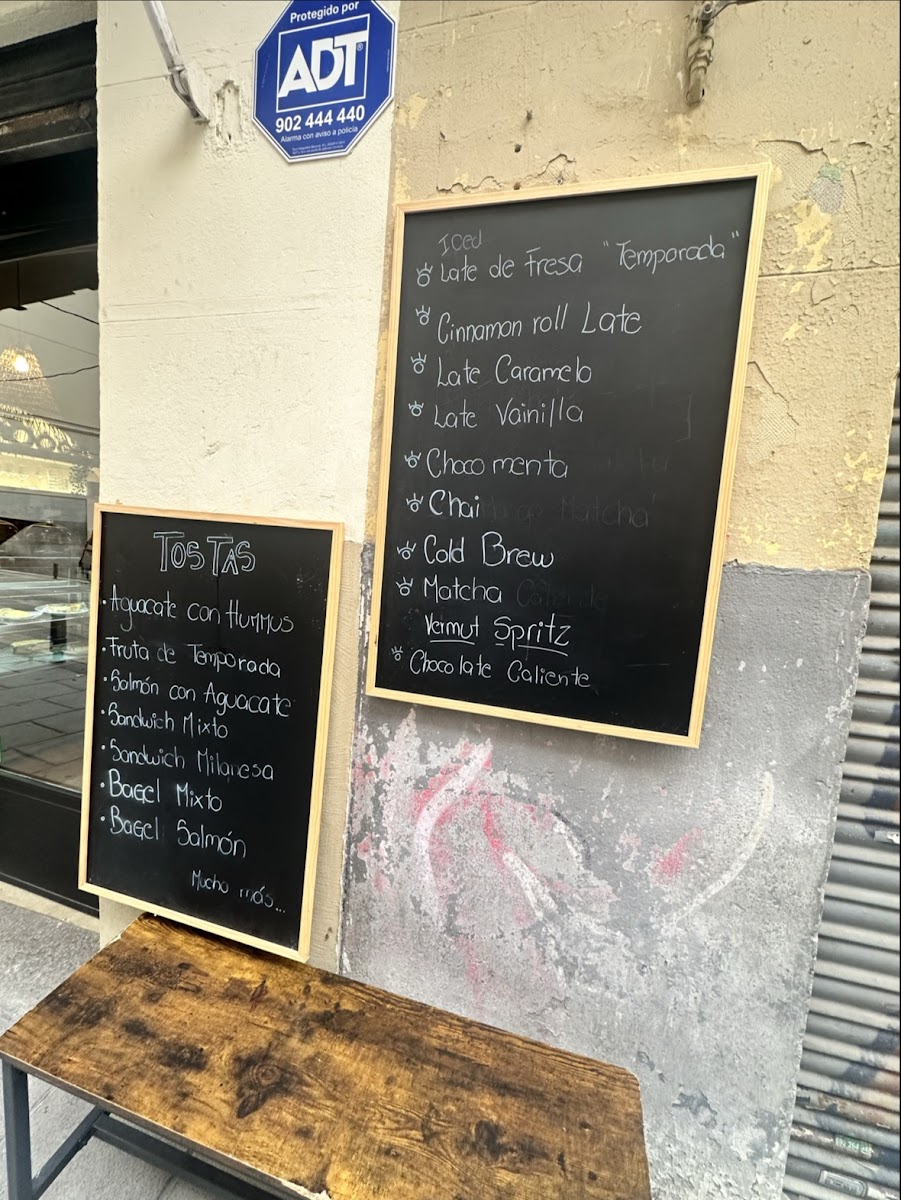 Protegido por
ADT
902 444 440
Alarma con aviso a policía
Iced
Late de Fresa "Temporada"
Cinnamon roll Late
Late Caramelo
Late Vainilla
Choco menta
Chai
Cold Brew
Matcha
Vermut Spritz
Chocolate Caliente
TOSTAS
· Aguacate con HUMMUS
· Fruta de Temporada
· Salmón con Aguacate
· Sandwich Mixto
· Sandwich Milanesa
· BaGEl Mixto
· BaGEl Salmón
Mucho más...